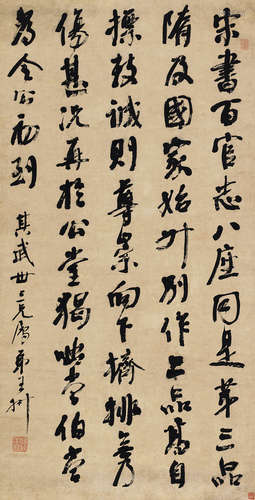 宋書百官志八座同是第三品
隋及國家始升別作二品高自
標致誠則尊崇向下擠排無乃
傷甚況再於公堂猲咄常伯當
為令公初到
其武世三兄屬弟王澍